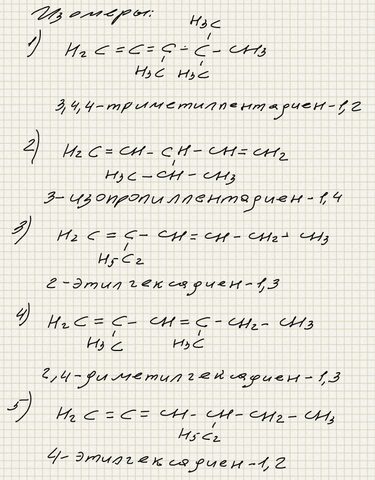 Изомеры:
H3C
1) H2C=C=C-C-CH3
H3C H3C
3,4,4-триметилпентадиен-1,2
2) H2C=CH-CH-CH=CH2
H3C-CH-CH3
3-изопропилпентадиен-1,4
3) H2C=C-CH=CH-CH2-CH3
H5C2
2-этилгексадиен-1,3
4) H2C=C-CH=C-CH2-CH3
H3C H3C
2,4-диметилгексадиен-1,3
5) H2C=C=CH-CH-CH2-CH3
H5C2
4-этилгексадиен-1,2